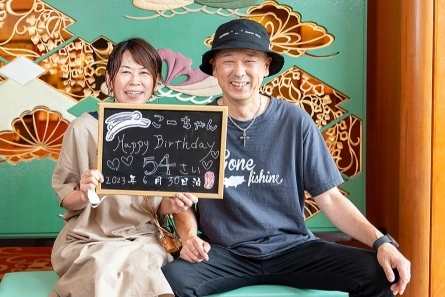 こーちゃん
Happy Birthday
54さい
2023年6月30日
Gone
fishing